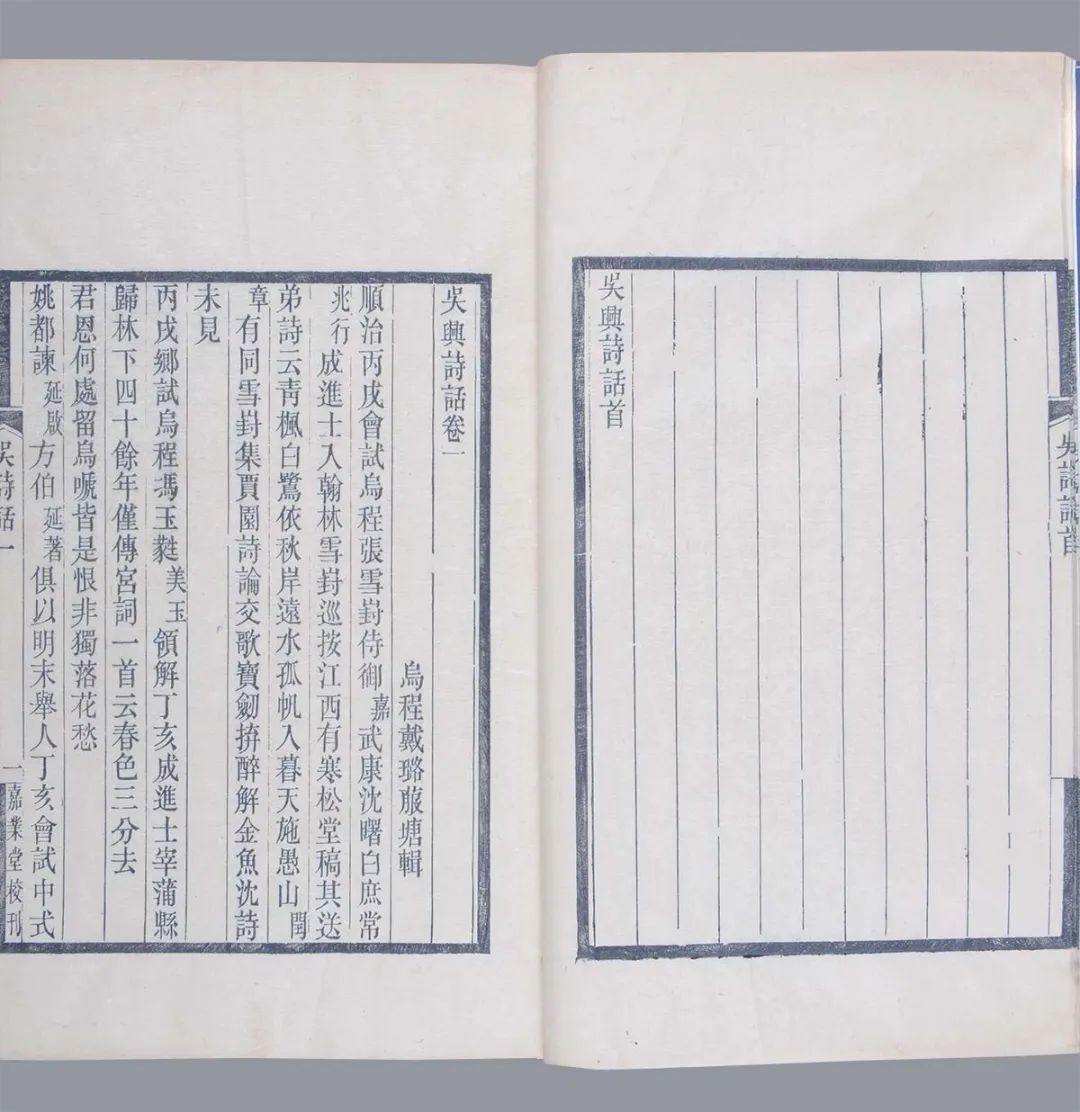 吳興詩話首
吳詩話首
吳興詩話卷一
烏程戴璐菔塘輯
順治丙戌會試烏程張雪葑侍御嘉武康沈曙白庶常
兆行成進士入翰林雪葑巡按江西有寒松堂稿其送
弟詩云靑楓白鷺依秋岸遠水孤帆入暮天施愚山閏
章有同雪葑集賈園詩論交歌寶劒拚醉解金魚沈詩
未見
丙戌鄉試烏程馮玉蕤美玉領解丁亥成進士宰蒲縣
歸林下四十餘年僅傳宮詞一首云春色三分去
君恩何處留烏嗁皆是恨非獨落花愁
姚都諫延啟方伯延著俱以明末舉人丁亥會試中式
吳詩話一
一
嘉業堂校刊